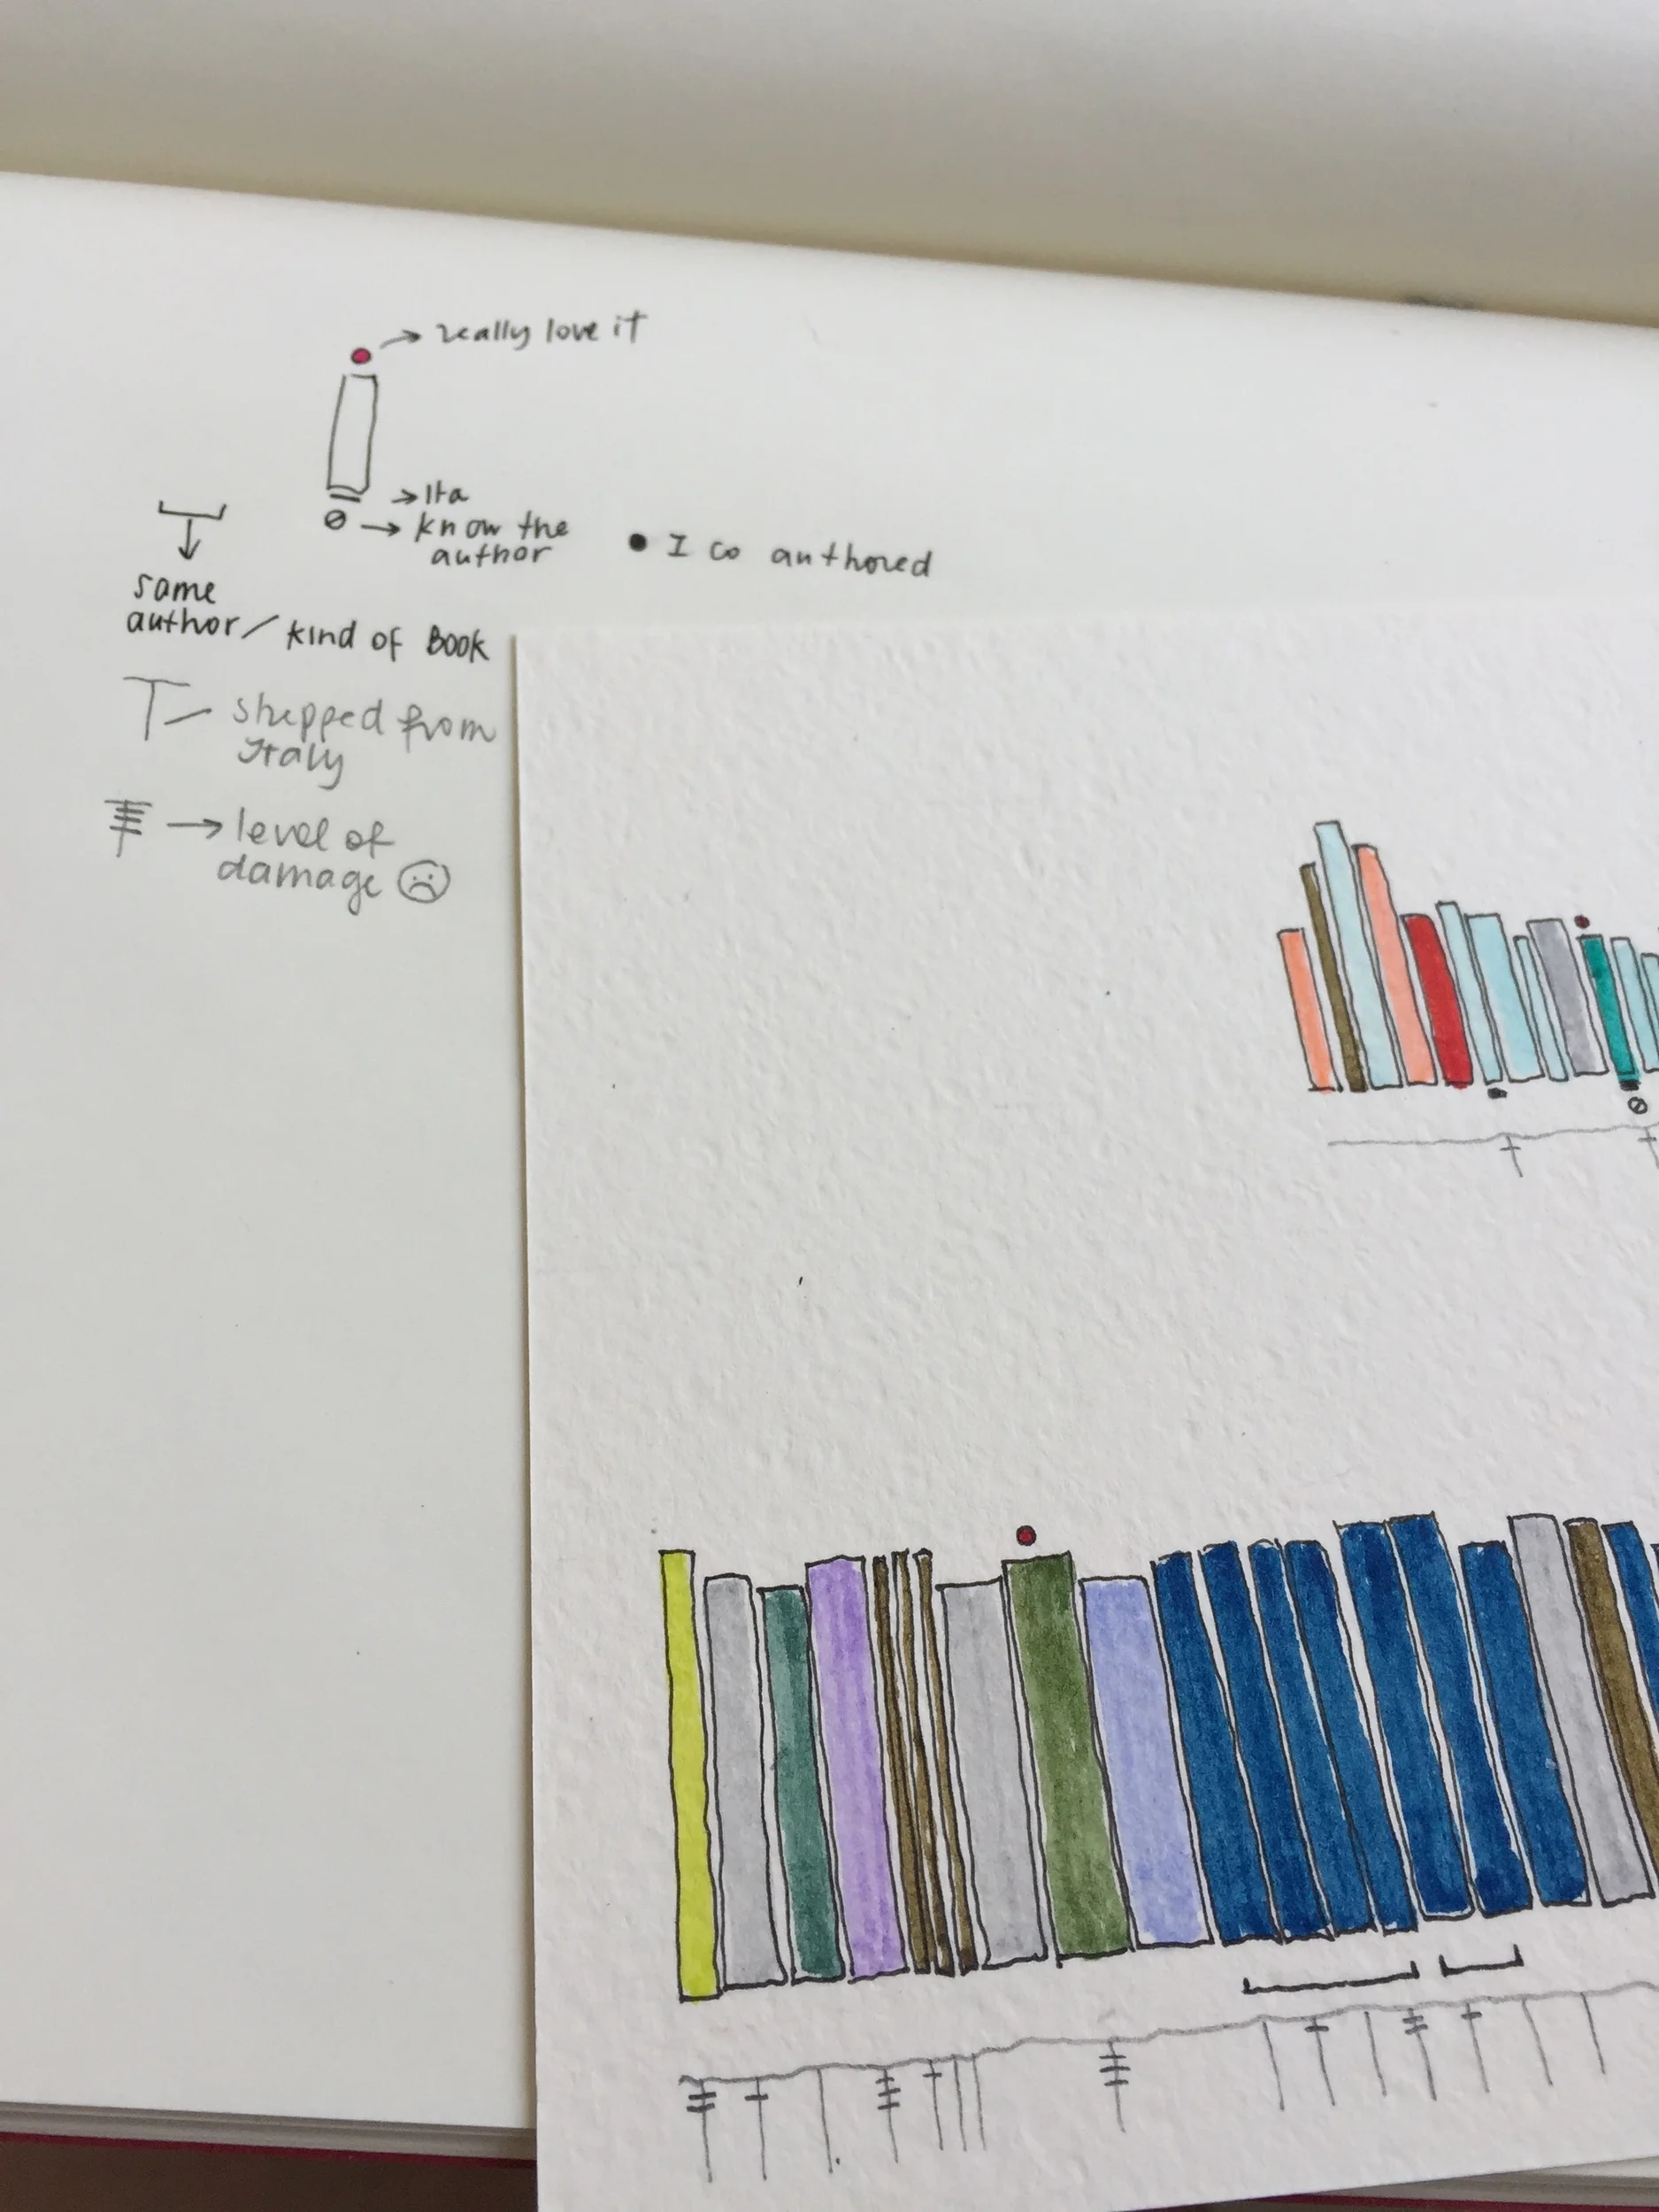 really love it
Ita
know the
author
I co authored
same
author/kind of Book
shipped from
Italy
level of
damage